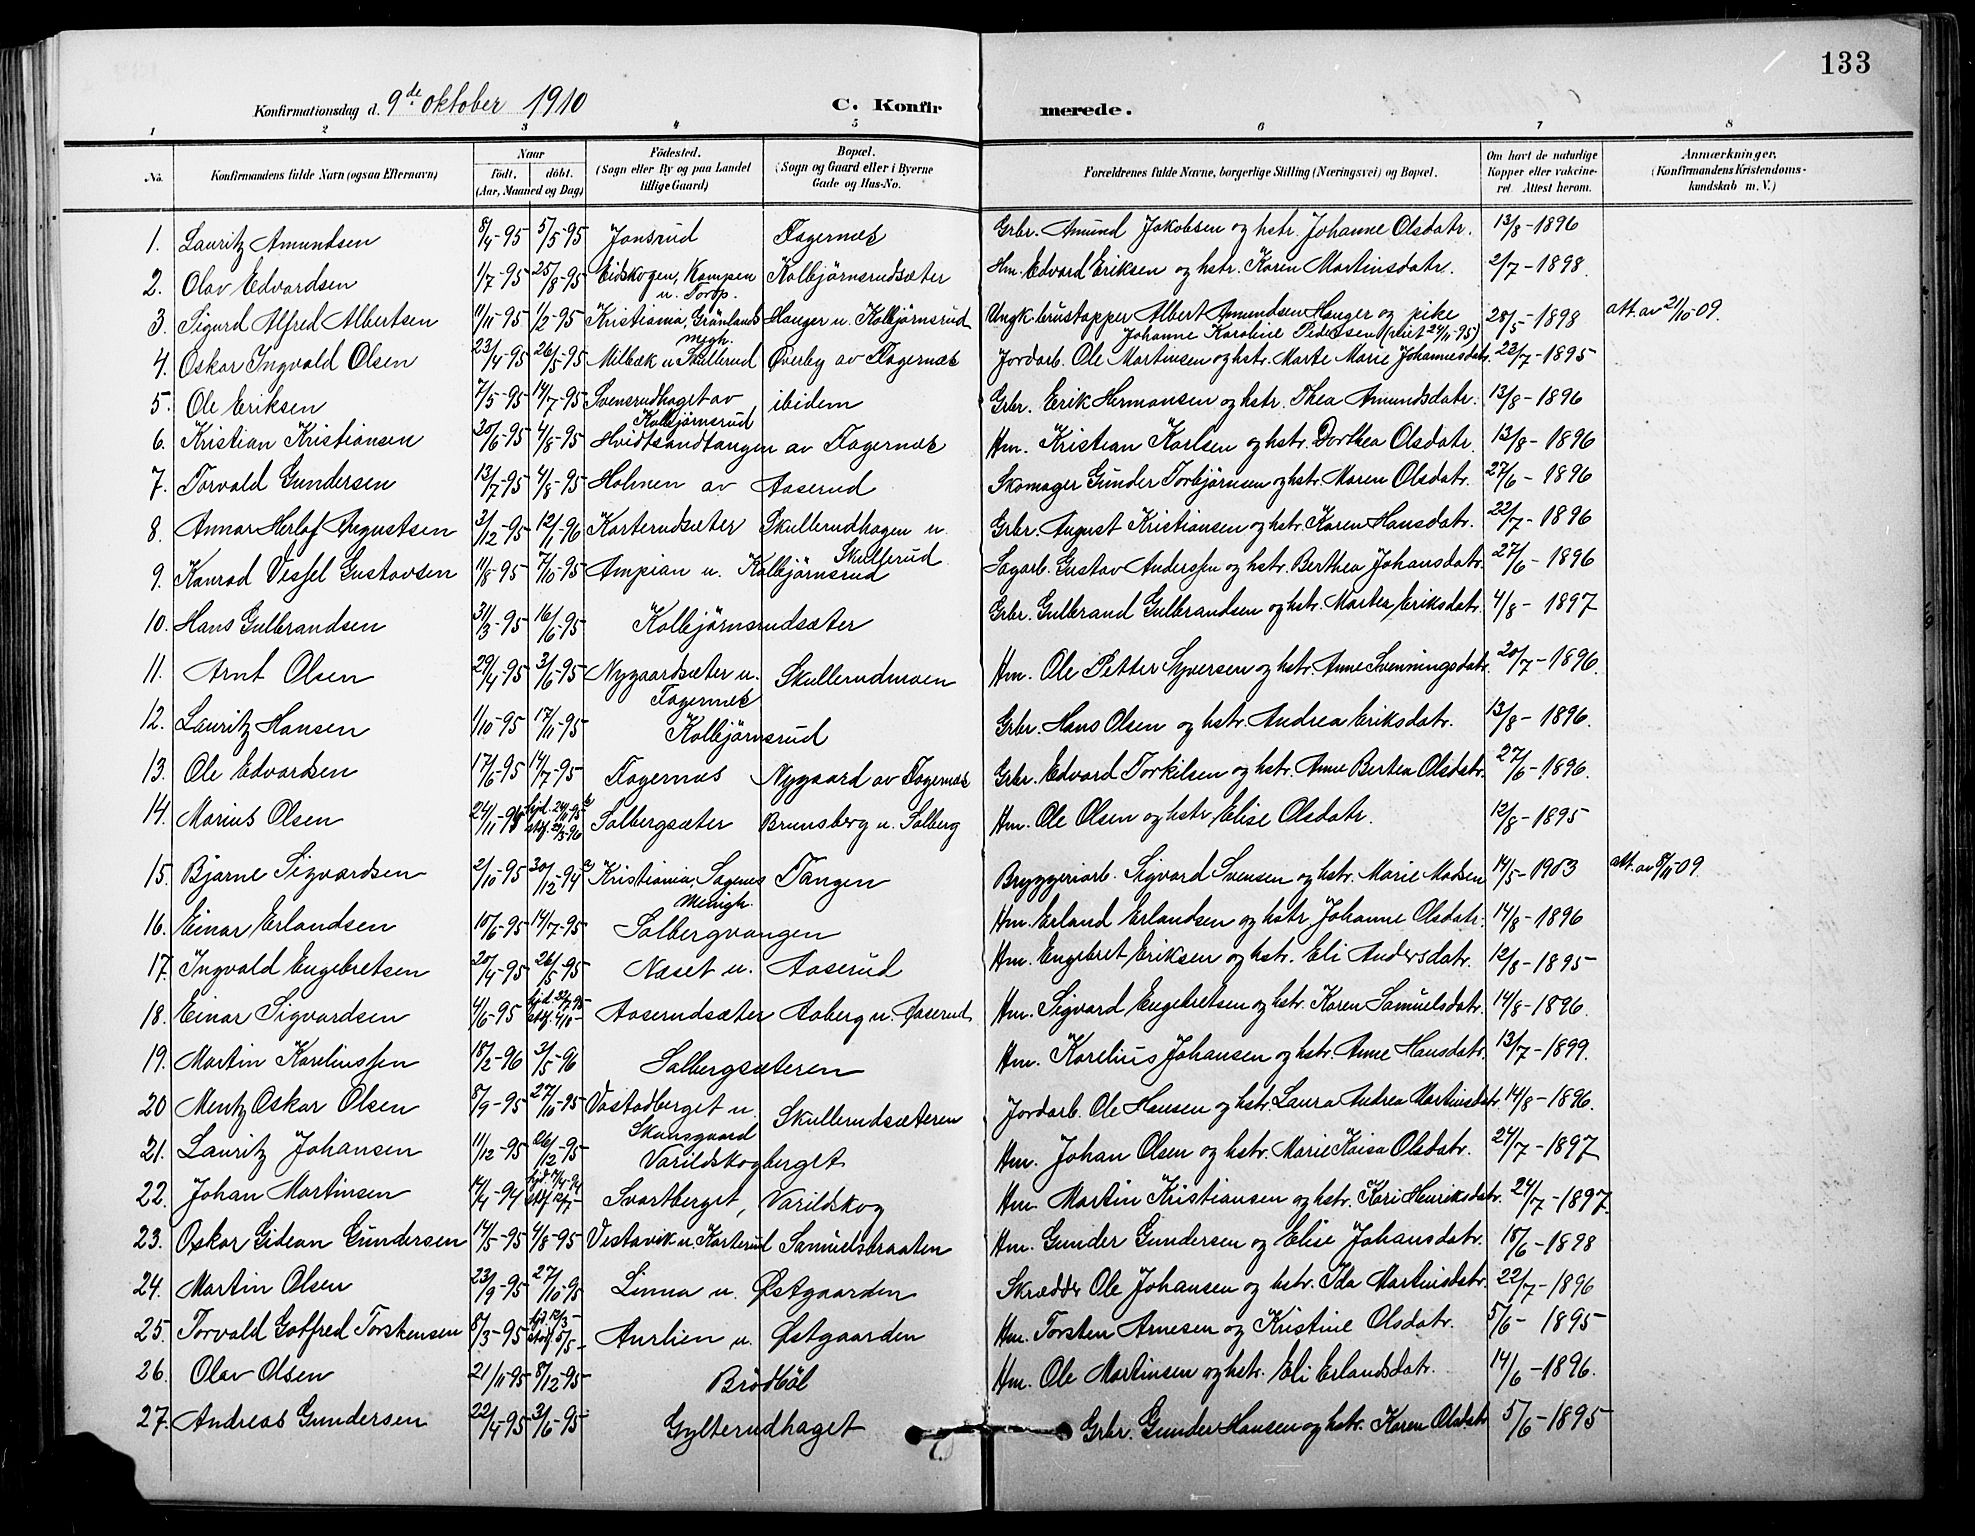 133
Konfirmationsdag d. 9de oktober 1910 C. Konfirmerede.
1 2 3 4 5 6 7 8
No. Konfirmandens fulde Navn (ogsaa Efternavn) Naar født. døbt. (Aar, Maaned og Dag) Fødested. (Sogn eller By og paa Landet tillige Gaard) Bopæl. (Sogn og Gaard eller i Byerne Gade og Hus-No. Forældrenes fulde Navne, borgerlige Stilling (Næringsvei) og Bopæl. Om havt de naturlige Kopper eller vakcineret. Attest herom. Anmærkninger. (Konfirmandens Kristendomskundskab m. V.)
1. Lauritz Amundsen 8/4-95 5/5-95 Jonsrud Fagernes Grbr. Amund Jakobsen og hstr. Johanne Olsdatr. 13/8-1896
2. Olav Edvardsen 1/7-95 25/8-95 Eidskogen, Kampen u. Torp. Kolbjørnsrudsæter Hm. Edvard Eriksen og hstr. Karen Martinsdatr. 2/7-1898.
3. Sigurd Alfred Albertsen 11/11-95 1/2-95 Kristiania, Grønlands megh. Hauger u. Kolbjørnsrud Ungk. brustapper Albert Amundsen Hauger og pike Johanne Karoline Pedersen (viet 24/11-95) 28/5-1898 att. av 21/10-09.
4. Oskar Ingvald Olsen 23/4-95 26/5-95 Milbæk u Skullerud Øierby av Fagernes Jordarb. Ole Martinsen og hstr. Marte Marie Johannesdatr. 23/7-1895
5. Ole Eriksen 7/5-95 14/7-95 Svensrudhaget av Kolbjørnsrud ibidem Grbr. Erik Hermansen og hstr. Thea Amundsdatr. 13/8-1896
6. Kristian Kristiansen 30/6-95 4/8-95 Hvidtsandtangen av Fagernes Hm. Kristian Karlsen og hstr. Dorthea Olsdatr. 13/8-1896
7. Torvald Gundersen 13/7-95 4/8-95 Holmen av Aaserud Skomager Gunder Torbjørnsen og hstr. Maren Olsdatr. 27/6-1896
8. Annar Herlof Augustsen 3/12-95 12/1-96 Karterudsæter Skullerudhagen u. Skullerud Grbr. August Kristiansen og hstr. Karen Hansdatr. 22/7-1896
9. Konrad Vessel Gustavsen 11/8-95 7/10-95 Ampian u. Kolbjørnsrud Sagarb. Gustav Anderssen og hstr. Berthea Johansdatr. 27/6-1896
10. Hans Gulbrandsen 31/3-95 16/6-95 Kolbjørnsrudsæter Grbr. Gulbrand Gulbrandsen og hstr. Martea Eriksdatr. 4/8-1897
11. Arnt Olsen 29/4-95 3/6-95 Nygaardsæter u. Fagernes Skullerudmoen Hm. Ole Petter Syversen og hstr. Anne Svenningsdatr. 20/7-1896.
12. Lauritz Hansen 1/10-95 17/11-95 Kolbjørnsrud Grbr. Hans Olsen og hstr. Andrea Eriksdatr. 13/8-1896.
13. Ole Edvardsen 17/6-95 14/7-95 Fagernes Nygaard av Fagernes Grbr. Edvard Torkilsen og hstr. Anne Bertea Olsdatr. 27/6-1896.
14. Marius Olsen 24/11-95 hjd. 24/11-95 stdf. 29/3-96 Solbergsæter Brunsberg u. Solberg Hm. Ole Olsen og hstr. Elise Olsdatr. 12/8-1895
15. Bjarne Sigvardsen 2/10-95 30/12-94 Kristiania, Sagenes Menigh. Tangen Bryggeriarb. Sigvard Svensen og hstr. Marie Madsen 14/5-1903 att. av 8/11 09.
16. Einar Erlandsen 10/6-95 14/7-95 Solbergvangen Hm. Erland Erlandsen og hstr Johanne Olsdatr. 14/8-1896
17. Ingvald Engebretsen 20/4-95 26/5-95 Næset u. Aaserud Hm. Engebret Eriksen og hstr. Eli Andersdatr. 12/8-1895
18. Einar Sigvardsen 4/6-95 stdf. 4/10- Aaserudsæter Aaberg u. Aaserud Hm. Sigvard Engebretsen og hstr. Karen Samuelsdatr. 14/8-1896.
19. Martin Kareliussen 18/2-96 3/5-96 Solbergsæteren Hm. Karelius Johansen og hstr. Anne Hansdatr. 13/7-1899.
20 Mentz Oskar Olsen 8/9-95 27/10-95 Vastadberget u. Skansgaard Skullerudsæteren Jordarb. Ole Hansen og hstr. Laura Andrea Martinsdatr. 14/8-1896.
21. Lauritz Johansen 11/12-95 26/12-95 Varildskogberget Hm. Johan Olsen og hstr. Marie Kaisa Olsdatr. 24/7-1897
22. Johan Martinsen 14/4-94 hjd. 17/4-94 stdf. 12/7- Svartberget, Varildskog Hm. Martin Kristiansen og hstr. Kari Henriksdatr. 24/7-1897.
23. Oskar Gidean Gundersen 14/5-95 4/8-95 Vestavik u. Karterud Samuelsbraaten Hm. Gunder Gundersen og Elise Johansdatr. 18/6-1898
24. Martin Olsen 23/9-95 27/10-95 Linna u. Østgaarden Skrædder Ole Johansen og hstr. Ida Martinsdatr. 22/7-1896
25. Torvald Gotfred Torstensen 8/3-95 hjd. 12/3- stdf. 5/5- Aurlien u. Østgaarden Hm. Torsten Arnesen og Kristine Olsdatr. 5/6-1895
26. Olav Olsen 21/11-95 8/12-95 Brødbøl Hm. Ole Martinsen og hstr. Eli Erlandsdatr. 14/6-1896.
27. Andreas Gundersen 22/4-95 3/6-95 Gylterudhaget Grbr. Gunder Hansen og hstr. Karen Olsdatr 5/6-1895